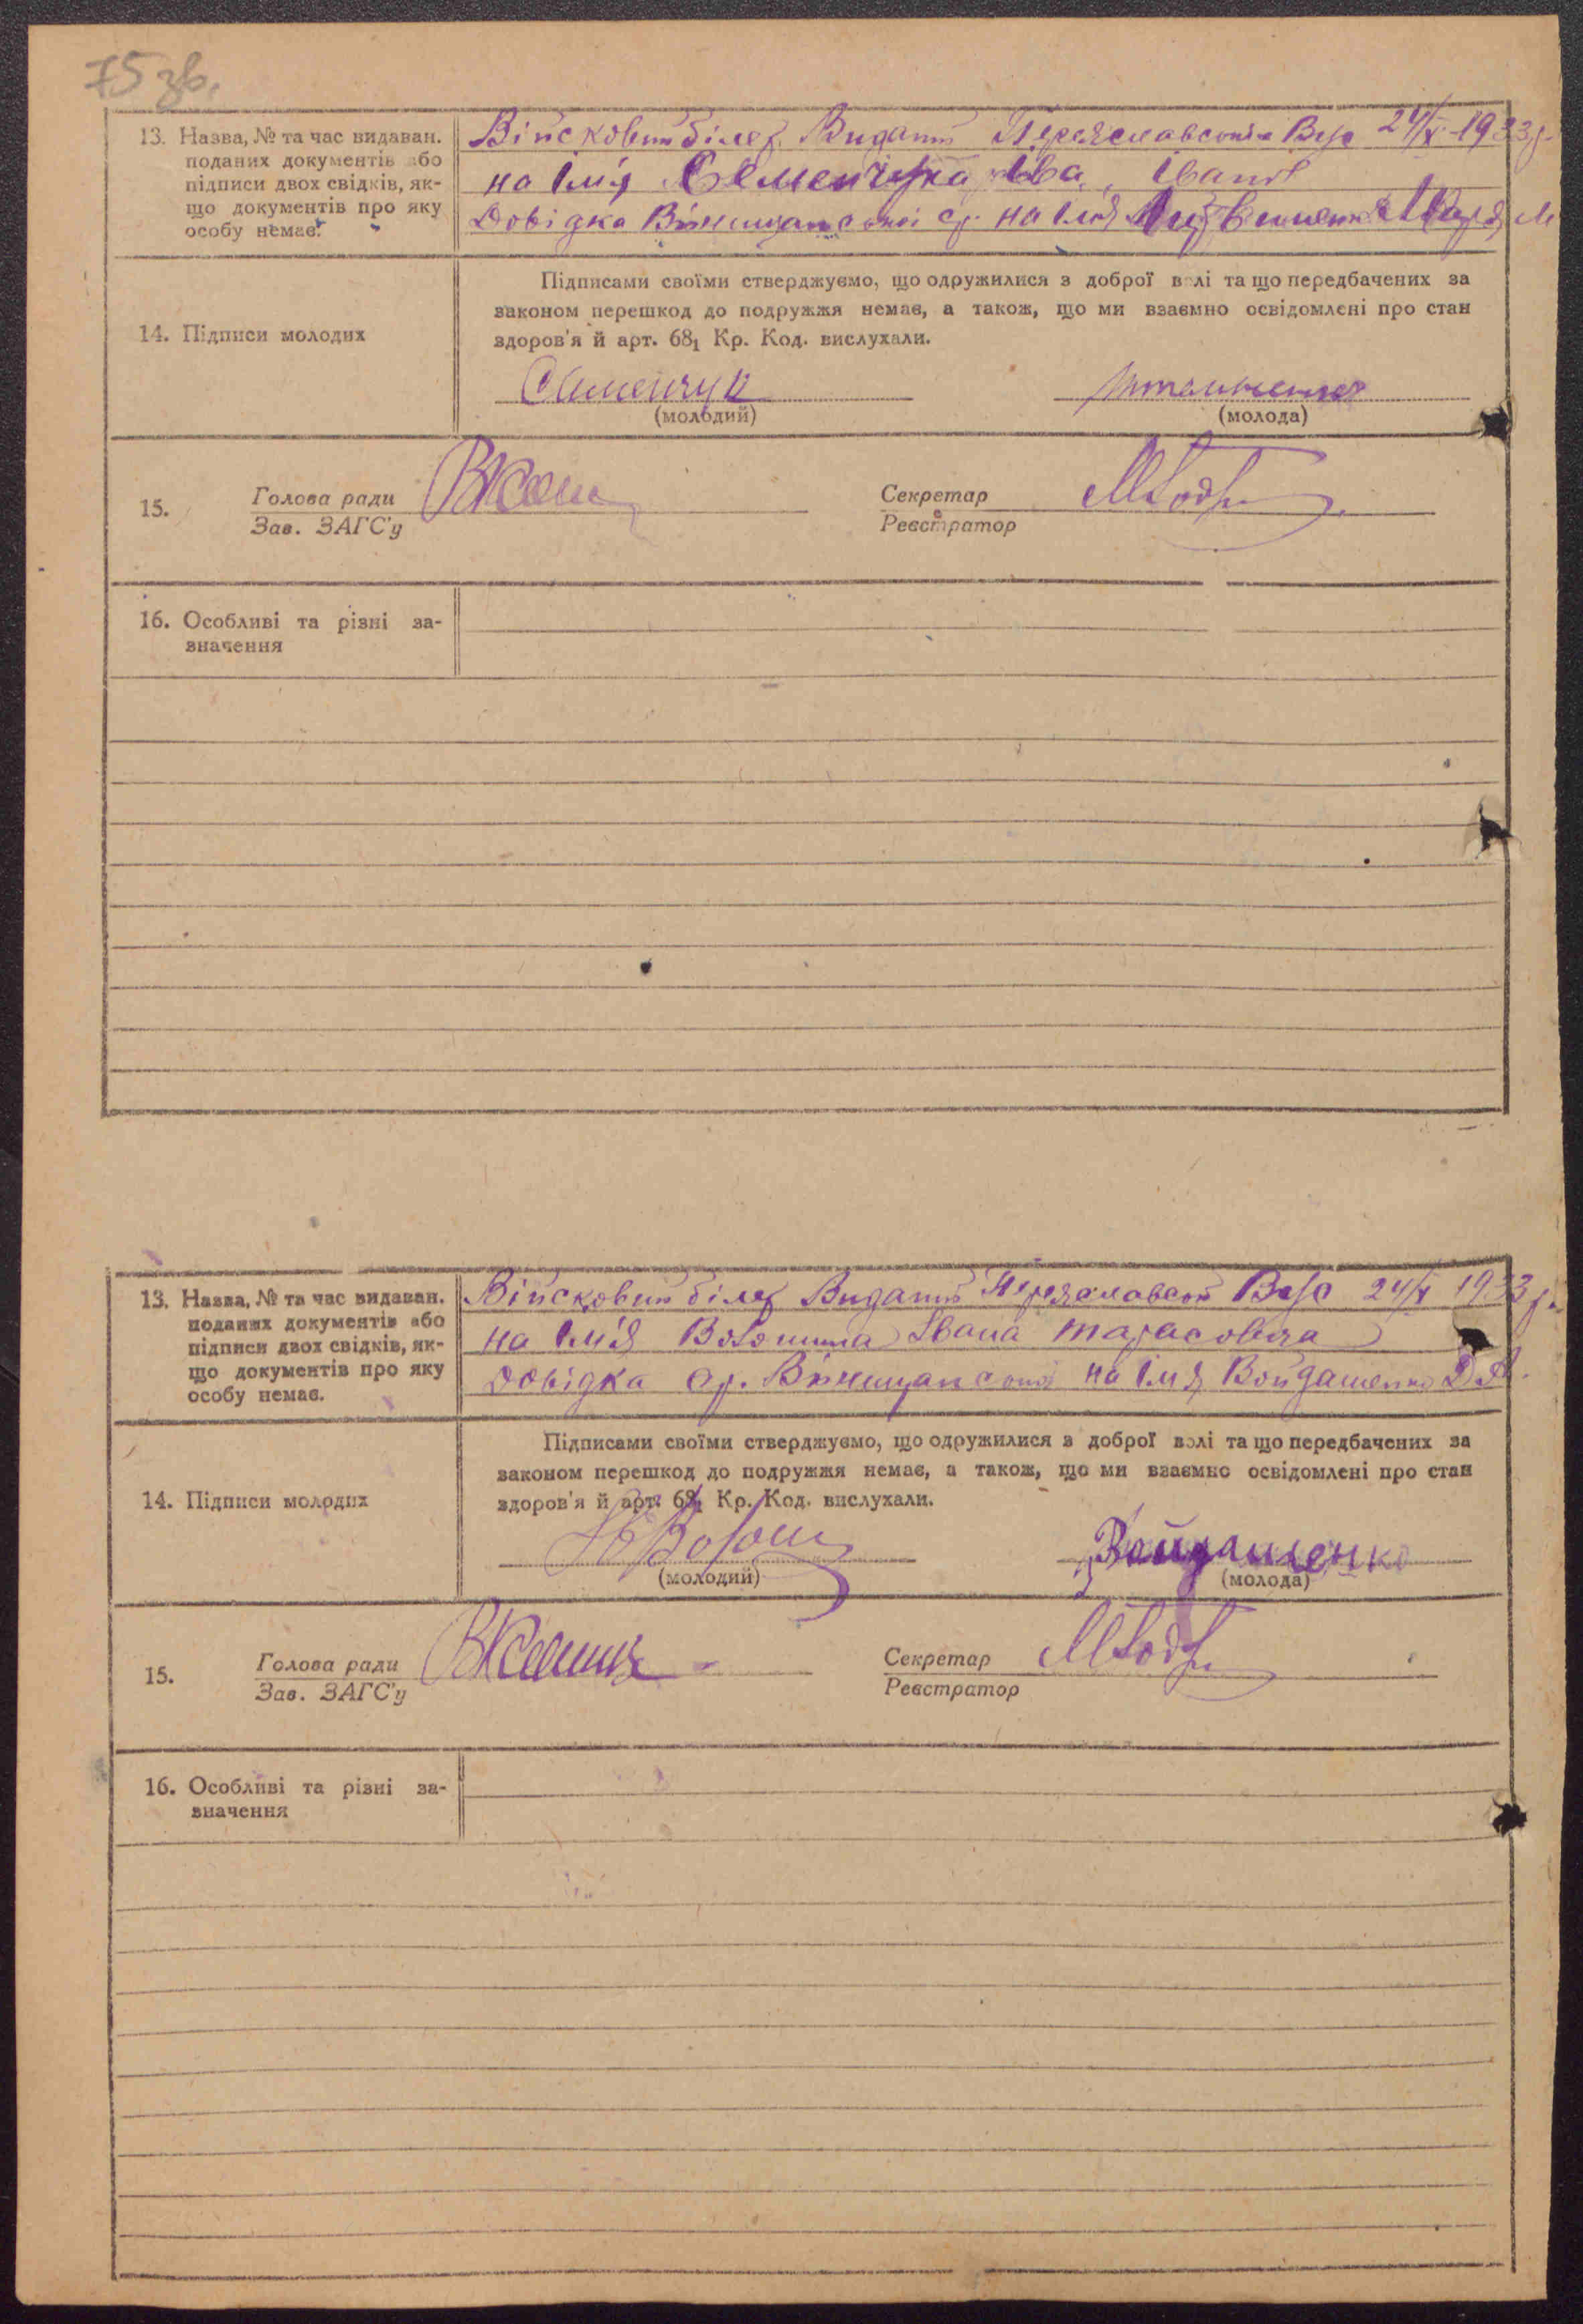 75 зв.
13. Назва, № та час видаван.
поданих документів або
підписи двох свідків, як-
що документів про яку
особу немає.
Війсковий білет Виданий Переяславським Вуро 24/X-1933 р.
на імя Семенчука Іва. Іван
Довідка ср. на імя
14. Підписи молодих
Підписами своїми стверджуємо, що одружилися з доброї волі та що передбачених за
законом перешкод до подружжя немає, а також, що ми взаємно освідомлені про стан
здоров'я й арт. 68₁ Кр. Код. вислухали.
Семенчук
(молодий) (молода)
15. Голова ради Секретар
Зав. ЗАГС'у Реєстратор
16. Особливі та різні за-
значення
13. Назва, № та час видаван.
поданих документів або
підписи двох свідків, як-
що документів про яку
особу немає.
Війсковий білет Виданий 24/X 1933 р.
на імя Волошина Івана Тарасовича
Довідка ср. на імя Войдашенко Д.А.
14. Підписи молодих
Підписами своїми стверджуємо, що одружилися з доброї волі та що передбачених за
законом перешкод до подружжя немає, а також, що ми взаємно освідомлені про стан
здоров'я й арт. 68₁ Кр. Код. вислухали.
Ів Волош Войдашенко
(молодий) (молода)
15. Голова ради Секретар
Зав. ЗАГС'у Реєстратор
16. Особливі та різні за-
значення